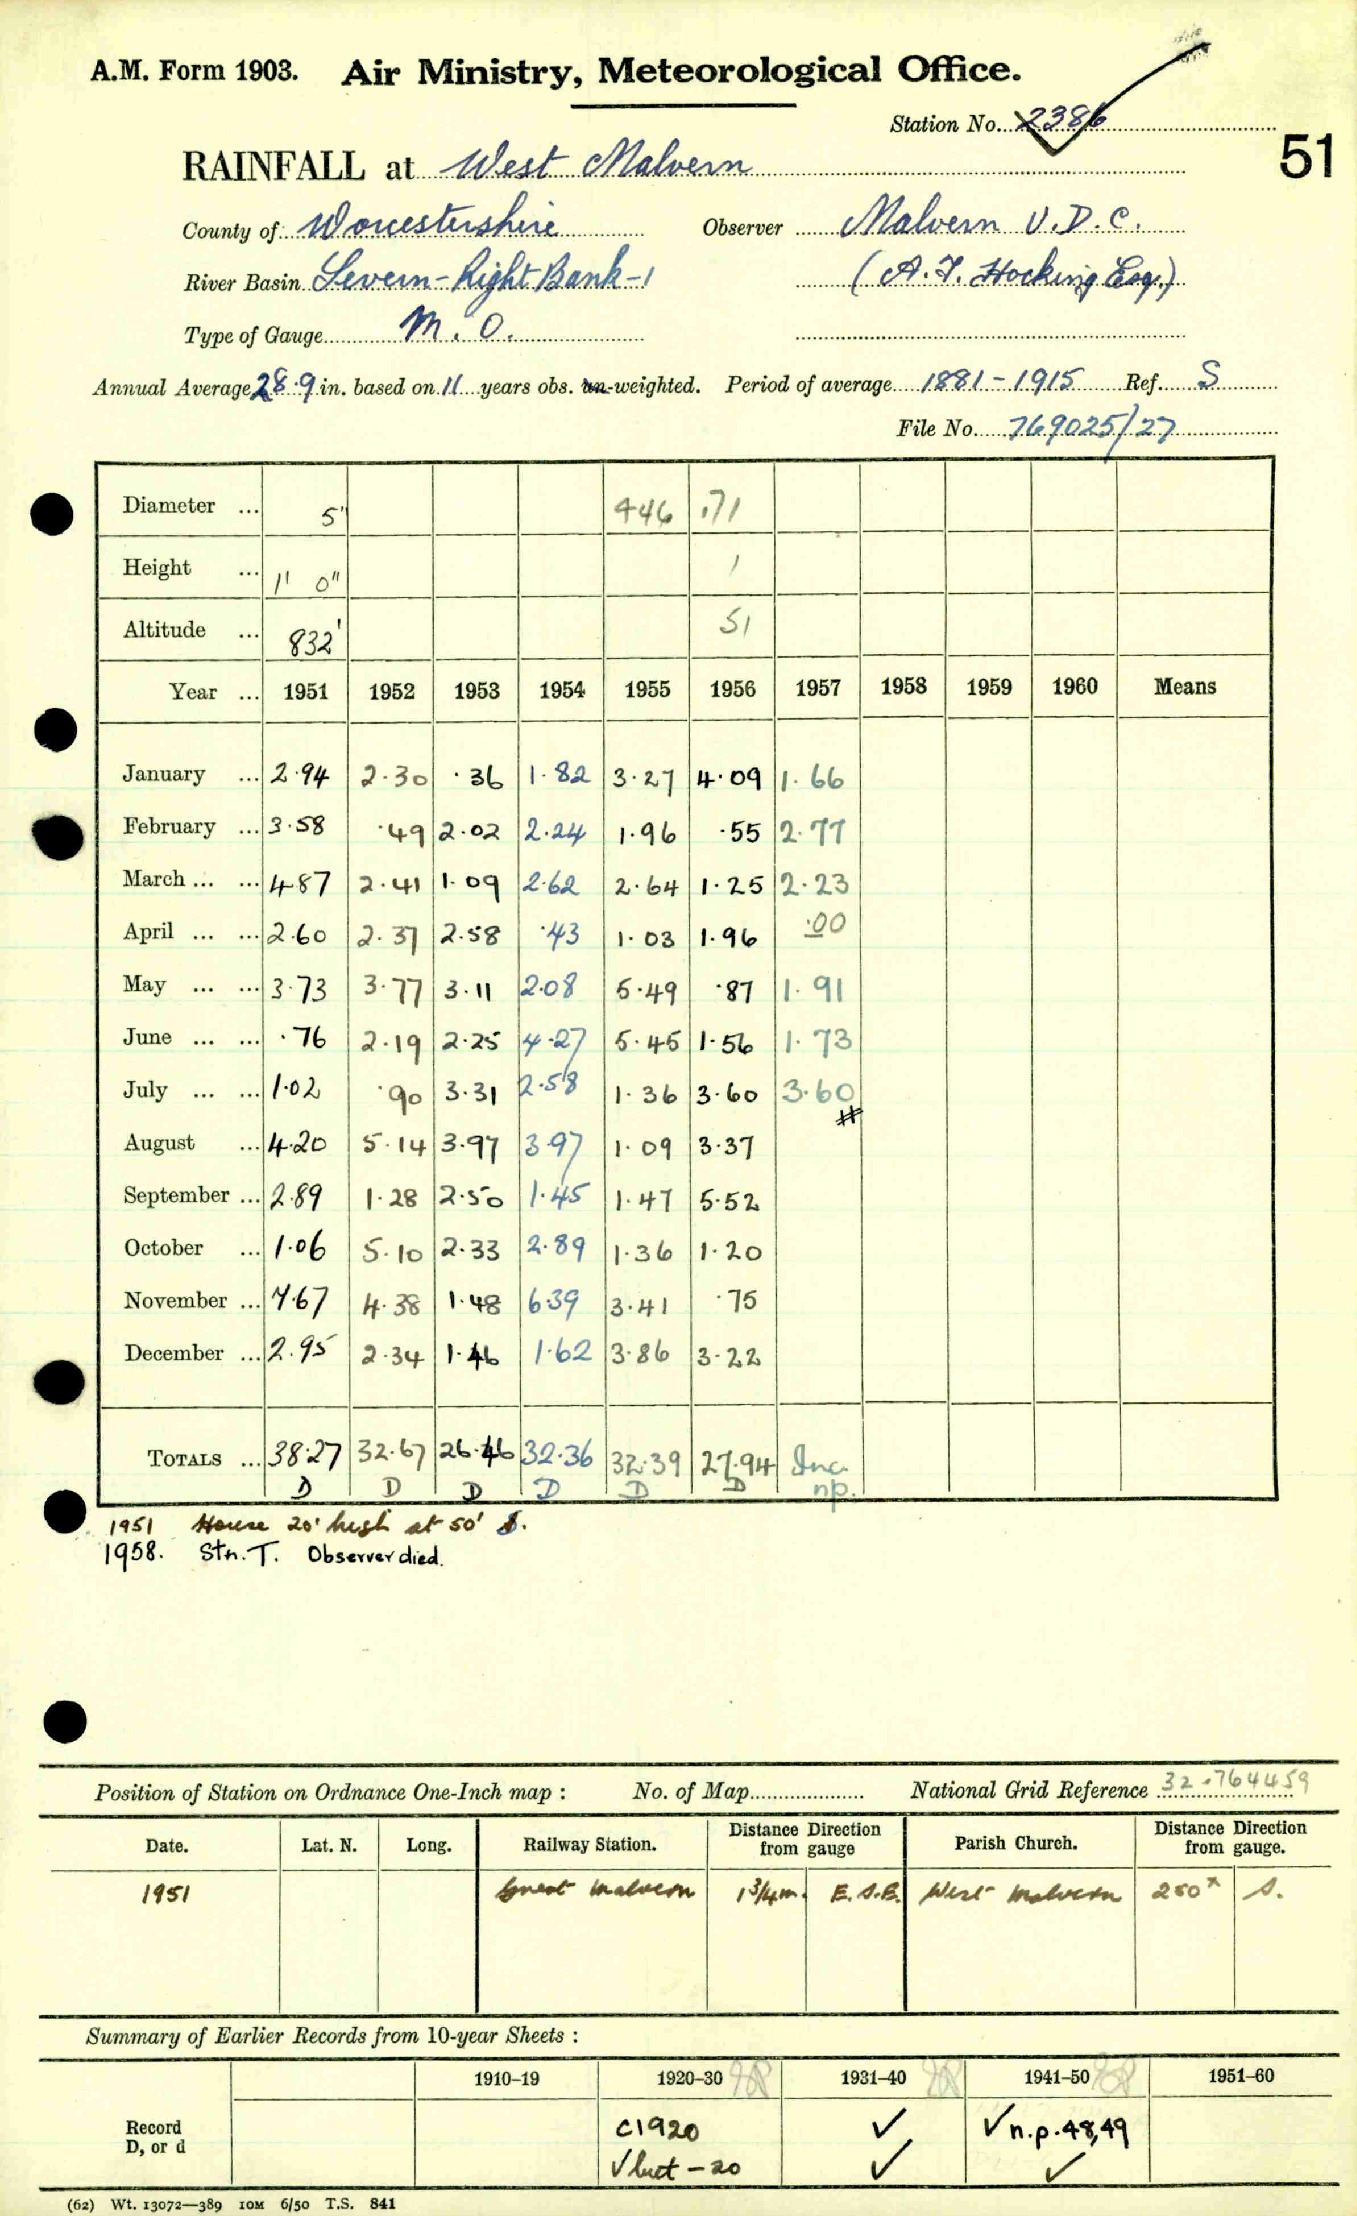 A.M. Form 1903. Air Ministry, Meteorological Office.
Station No. 2386
51
RAINFALL at West Malvern
County of Worcestershire Observer Malvern U.D.C.
River Basin Severn-Right Bank-1 (A.F. Hocking Esq.)
Type of Gauge M.O.
Annual Average 28.9 in. based on 11 years obs. un-weighted. Period of average 1881-1915 Ref. S
File No. 769025/27
Diameter ... 5" 446 .71
Height ... 1' 0" 1
Altitude ... 832' 51
Year ... 1951 1952 1953 1954 1955 1956 1957 1958 1959 1960 Means
January ... 2.94 2.30 .36 1.82 3.27 4.09 1.66
February ... 3.58 .49 2.02 2.24 1.96 .55 2.77
March ... ... 4.87 2.41 1.09 2.62 2.64 1.25 2.23
April ... ... 2.60 2.37 2.58 .43 1.03 1.96 .00
May ... ... 3.73 3.77 3.11 2.08 5.49 .87 1.91
June ... ... .76 2.19 2.25 4.27 5.45 1.56 1.73
July ... ... 1.02 .90 3.31 2.58 1.36 3.60 3.60
#
August ... 4.20 5.14 3.97 3.97 1.09 3.37
September ... 2.89 1.28 2.50 1.45 1.47 5.52
October ... 1.06 5.10 2.33 2.89 1.36 1.20
November ... 7.67 4.38 1.48 6.39 3.41 .75
December ... 2.95 2.34 1.46 1.62 3.86 3.22
TOTALS ... 38.27 32.67 26.46 32.36 32.39 27.94 Inc.
D D D D D D np.
1951 House 20' high at 50' S.
1958. Stn. T. Observer died.
Position of Station on Ordnance One-Inch map : No. of Map National Grid Reference 32.764459
Date. Lat. N. Long. Railway Station. Distance Direction from gauge Parish Church. Distance Direction from gauge.
1951 Great Malvern 1 3/4 m. E.S.E. West Malvern 250x S.
Summary of Earlier Records from 10-year Sheets :
1910-19 1920-30 1931-40 1941-50 1951-60
Record C1920 ✓ ✓ n.p. 48,49
D, or d ✓ but - 20 ✓ ✓
(62) Wt. 13072—389 10M 6/50 T.S. 841